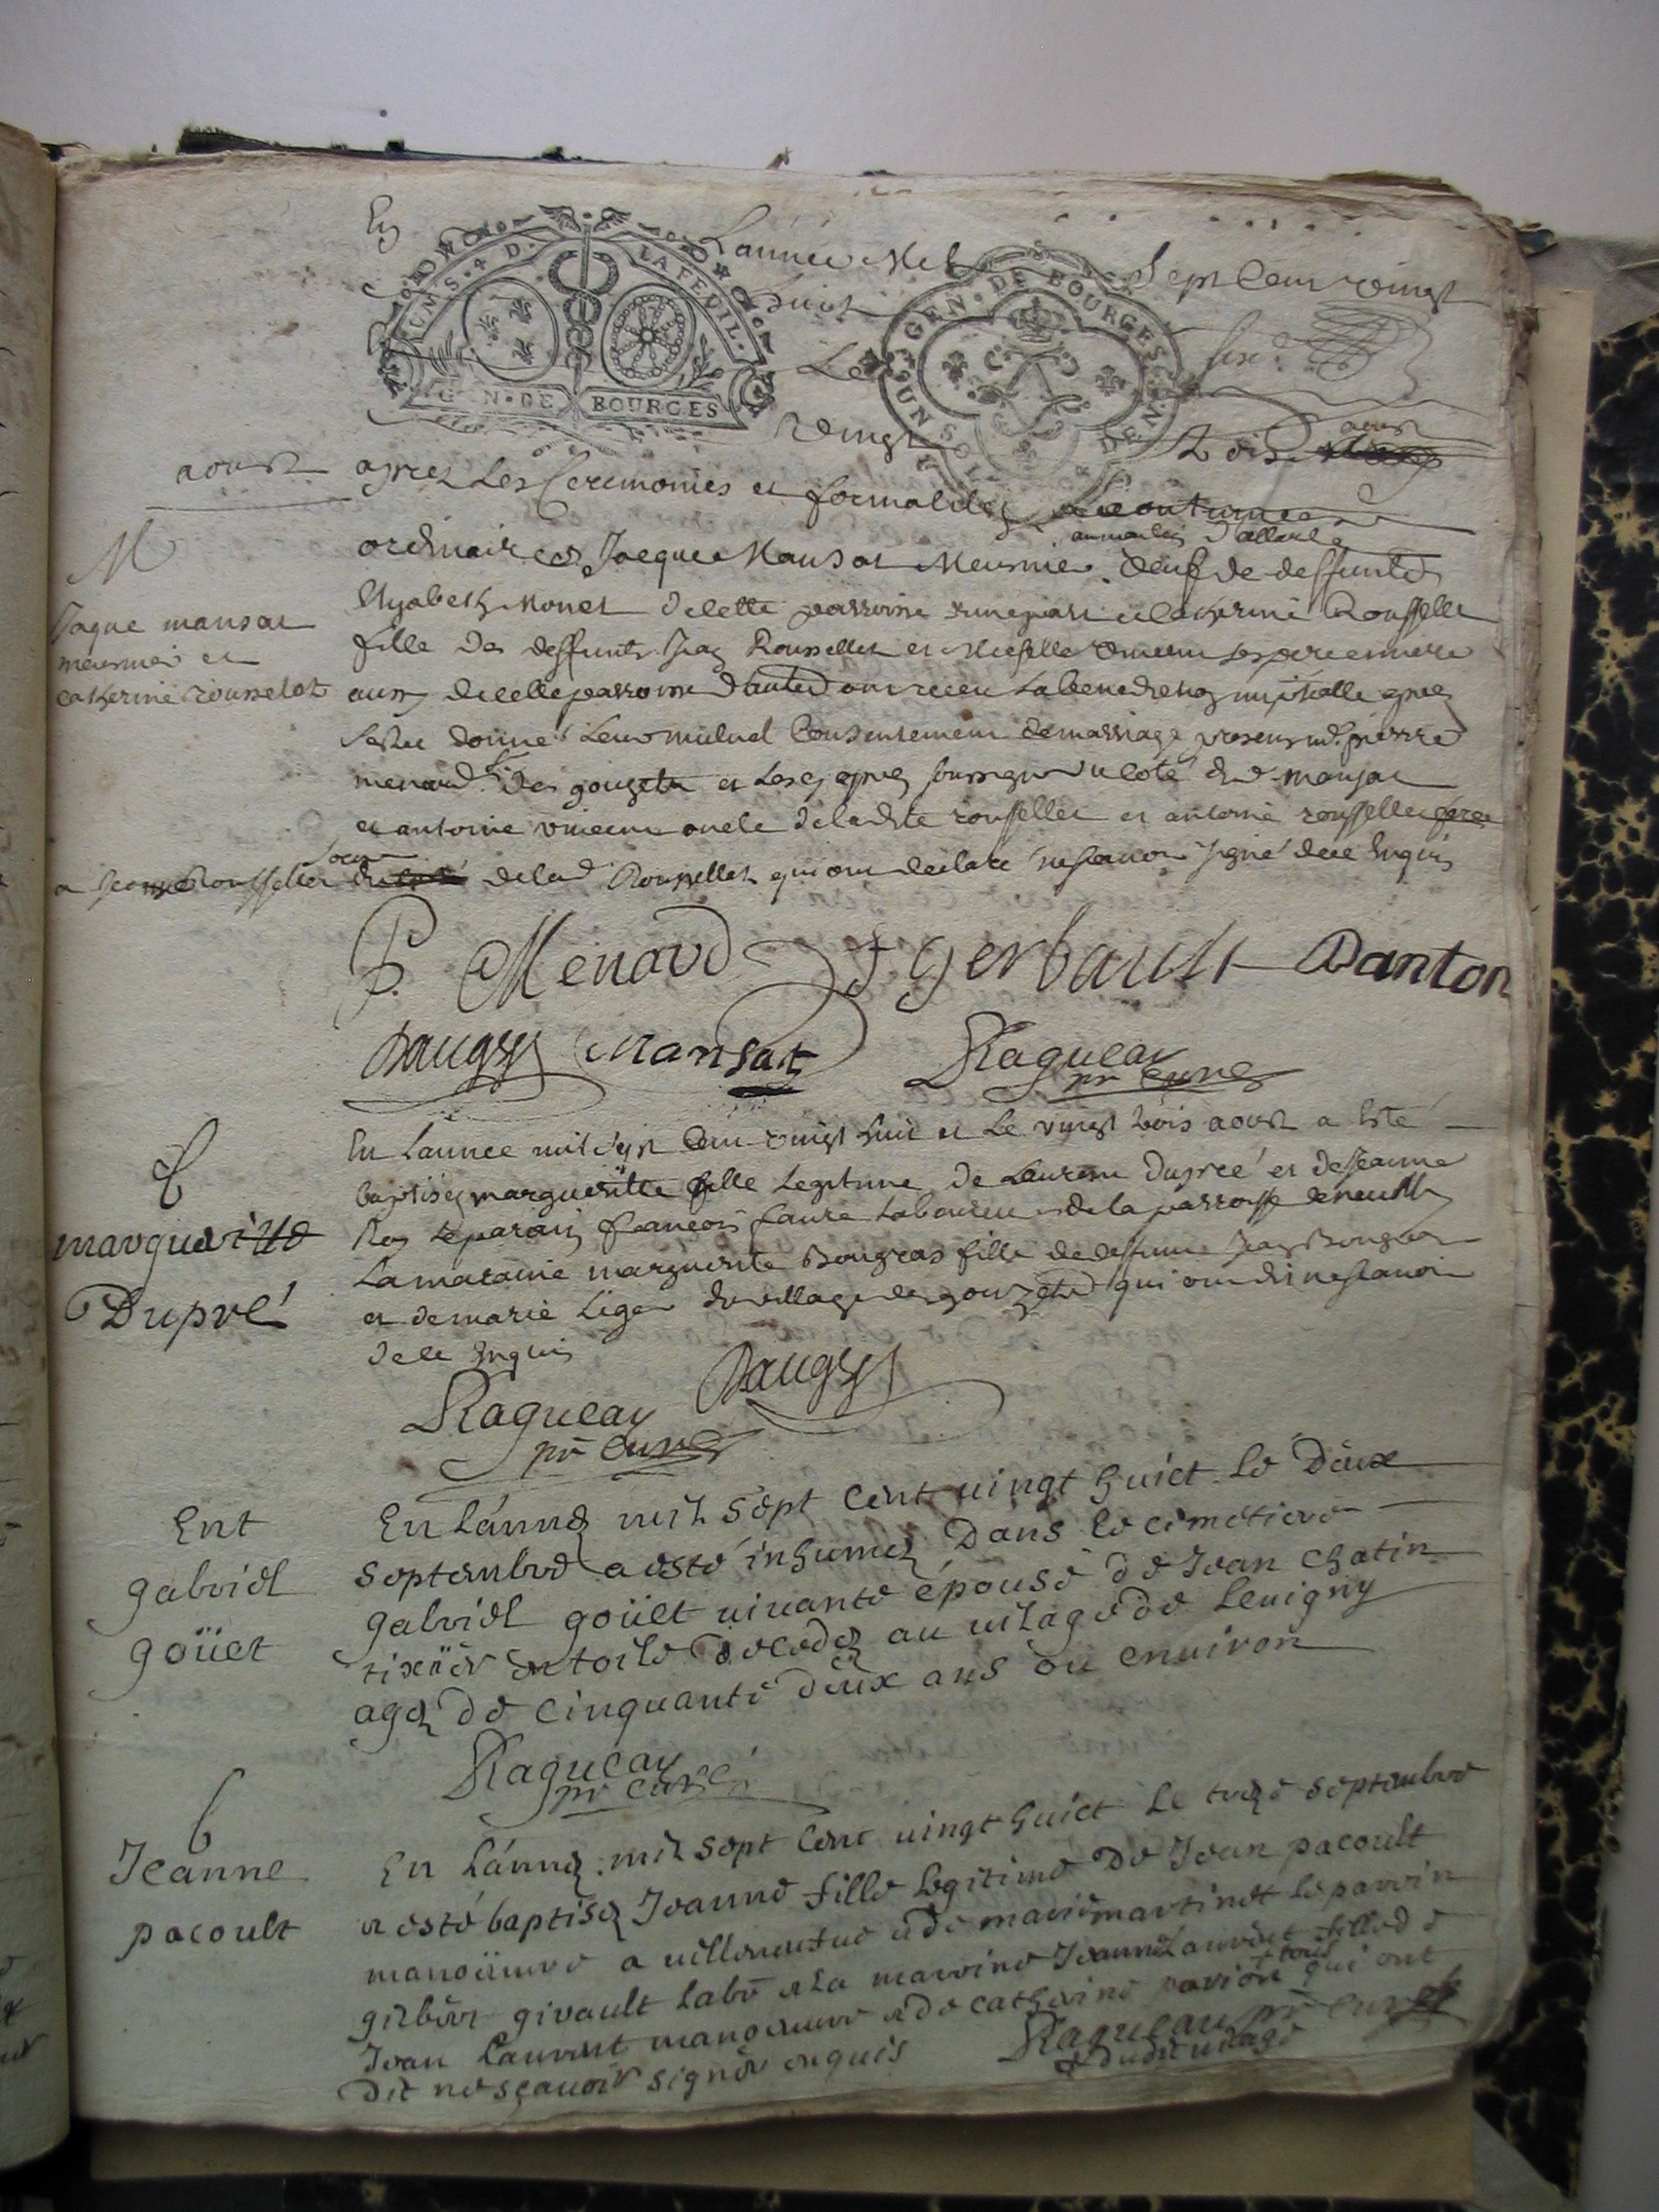 En Lannee Mil Sept Cent vingt
huict
GEN. DE BOURGES
LA FEUIL.
GEN. DE BOURGES
UN SOL
Le vingt trois aoust
aoust apres Les Ceremonies et formalitez accoutumees
M
ordinaires Jacque Mansat Meusnier au moulin veuf de deffunte
Jaque mansat
meusnier et
catherine rousselet
Elyzabeth Monet de cette parroisse d'une part et Catherine Rousselet
fille des deffunts Jean Rousselet et ses pere et mere
aussy de cette parroisse d'autre ont receu La benediction nuptialle apres
sestre donné Leur mutuel Consentement de mariage presens md. pierre
menard des gouzets et Les apres soussignes du coté dud. mansat
et antoine vincent oncle de ladite rousselet et antoine rousselet frere
et Jeanne Rousselet soeur de lad Rousselet qui ont declaré ne scavoir signé de ce Enquis
P. Menard J Gerbault Danton
Daugy Mansat Ragueau
pr curé
B
margueritte
Dupré
En Lannee mil sept Cent vingt huit et Le vingt trois aoust a Esté
baptisez margueritte fille Legitime de Laurent Dupré et de Jeanne
Roy Le parain francois faure Laboureur de la parroisse de neuilly
La maraine marguerite Bougras fille de deffunt Jean Bougras
et de marie Liger du village des gouzets qui ont dit ne scavoir
de ce Enquis
Ragueau Daugy
pr curé
Ent
gabriel
goüet
En Lánneé mil sept Cent vingt huict le deux
septembre a esté inhumeé dans le cimetiere
gabriel goüet vivante épouse de Jean chatin
tixiër en toile decedeé au vilage de Levigny
ageé de cinquante deux ans ou environ
Ragueau
pr curé
b
Jeanne
pacoult
En Lánneé mil sept Cent vingt huict Le treze septembre
a esté baptiseé Jeanne fille legitime de Jean pacoult
manoëuvre a villeneufve et de marie martinet le parrin
gilbert givault labr et la marrine Jeanne Laurent fille de
Jean Laurent manoeuvre et de catherine parion tous qui ont
dit ne sçavoir signer enquis Ragueau pr curé
dudit vilage